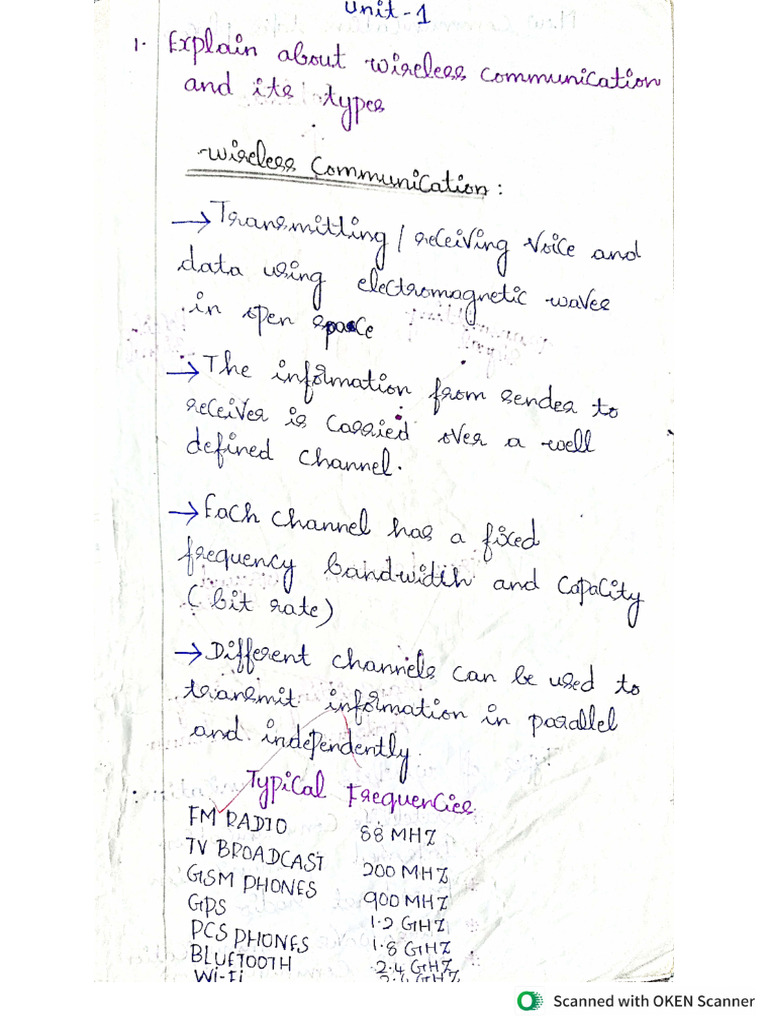 Unit-1
1. Explain about wireless communication
and its types
wireless Communication:
→ Transmitting / receiving voice and
data using electromagnetic waves
in open space
→ The information from sender to
receiver is carried over a well
defined channel.
→ Each channel has a fixed
frequency bandwidth and capacity
(bit rate)
→ Different channels can be used to
transmit information in parallel
and independently.
Typical Frequencies
FM RADIO 88 MHZ
TV BROADCAST 200 MHZ
GSM PHONES 900 MHZ
GPS 1.2 GHZ
PCS PHONES 1.8 GHZ
BLUETOOTH 2.4 GHZ
Wi-Fi
Scanned with OKEN Scanner